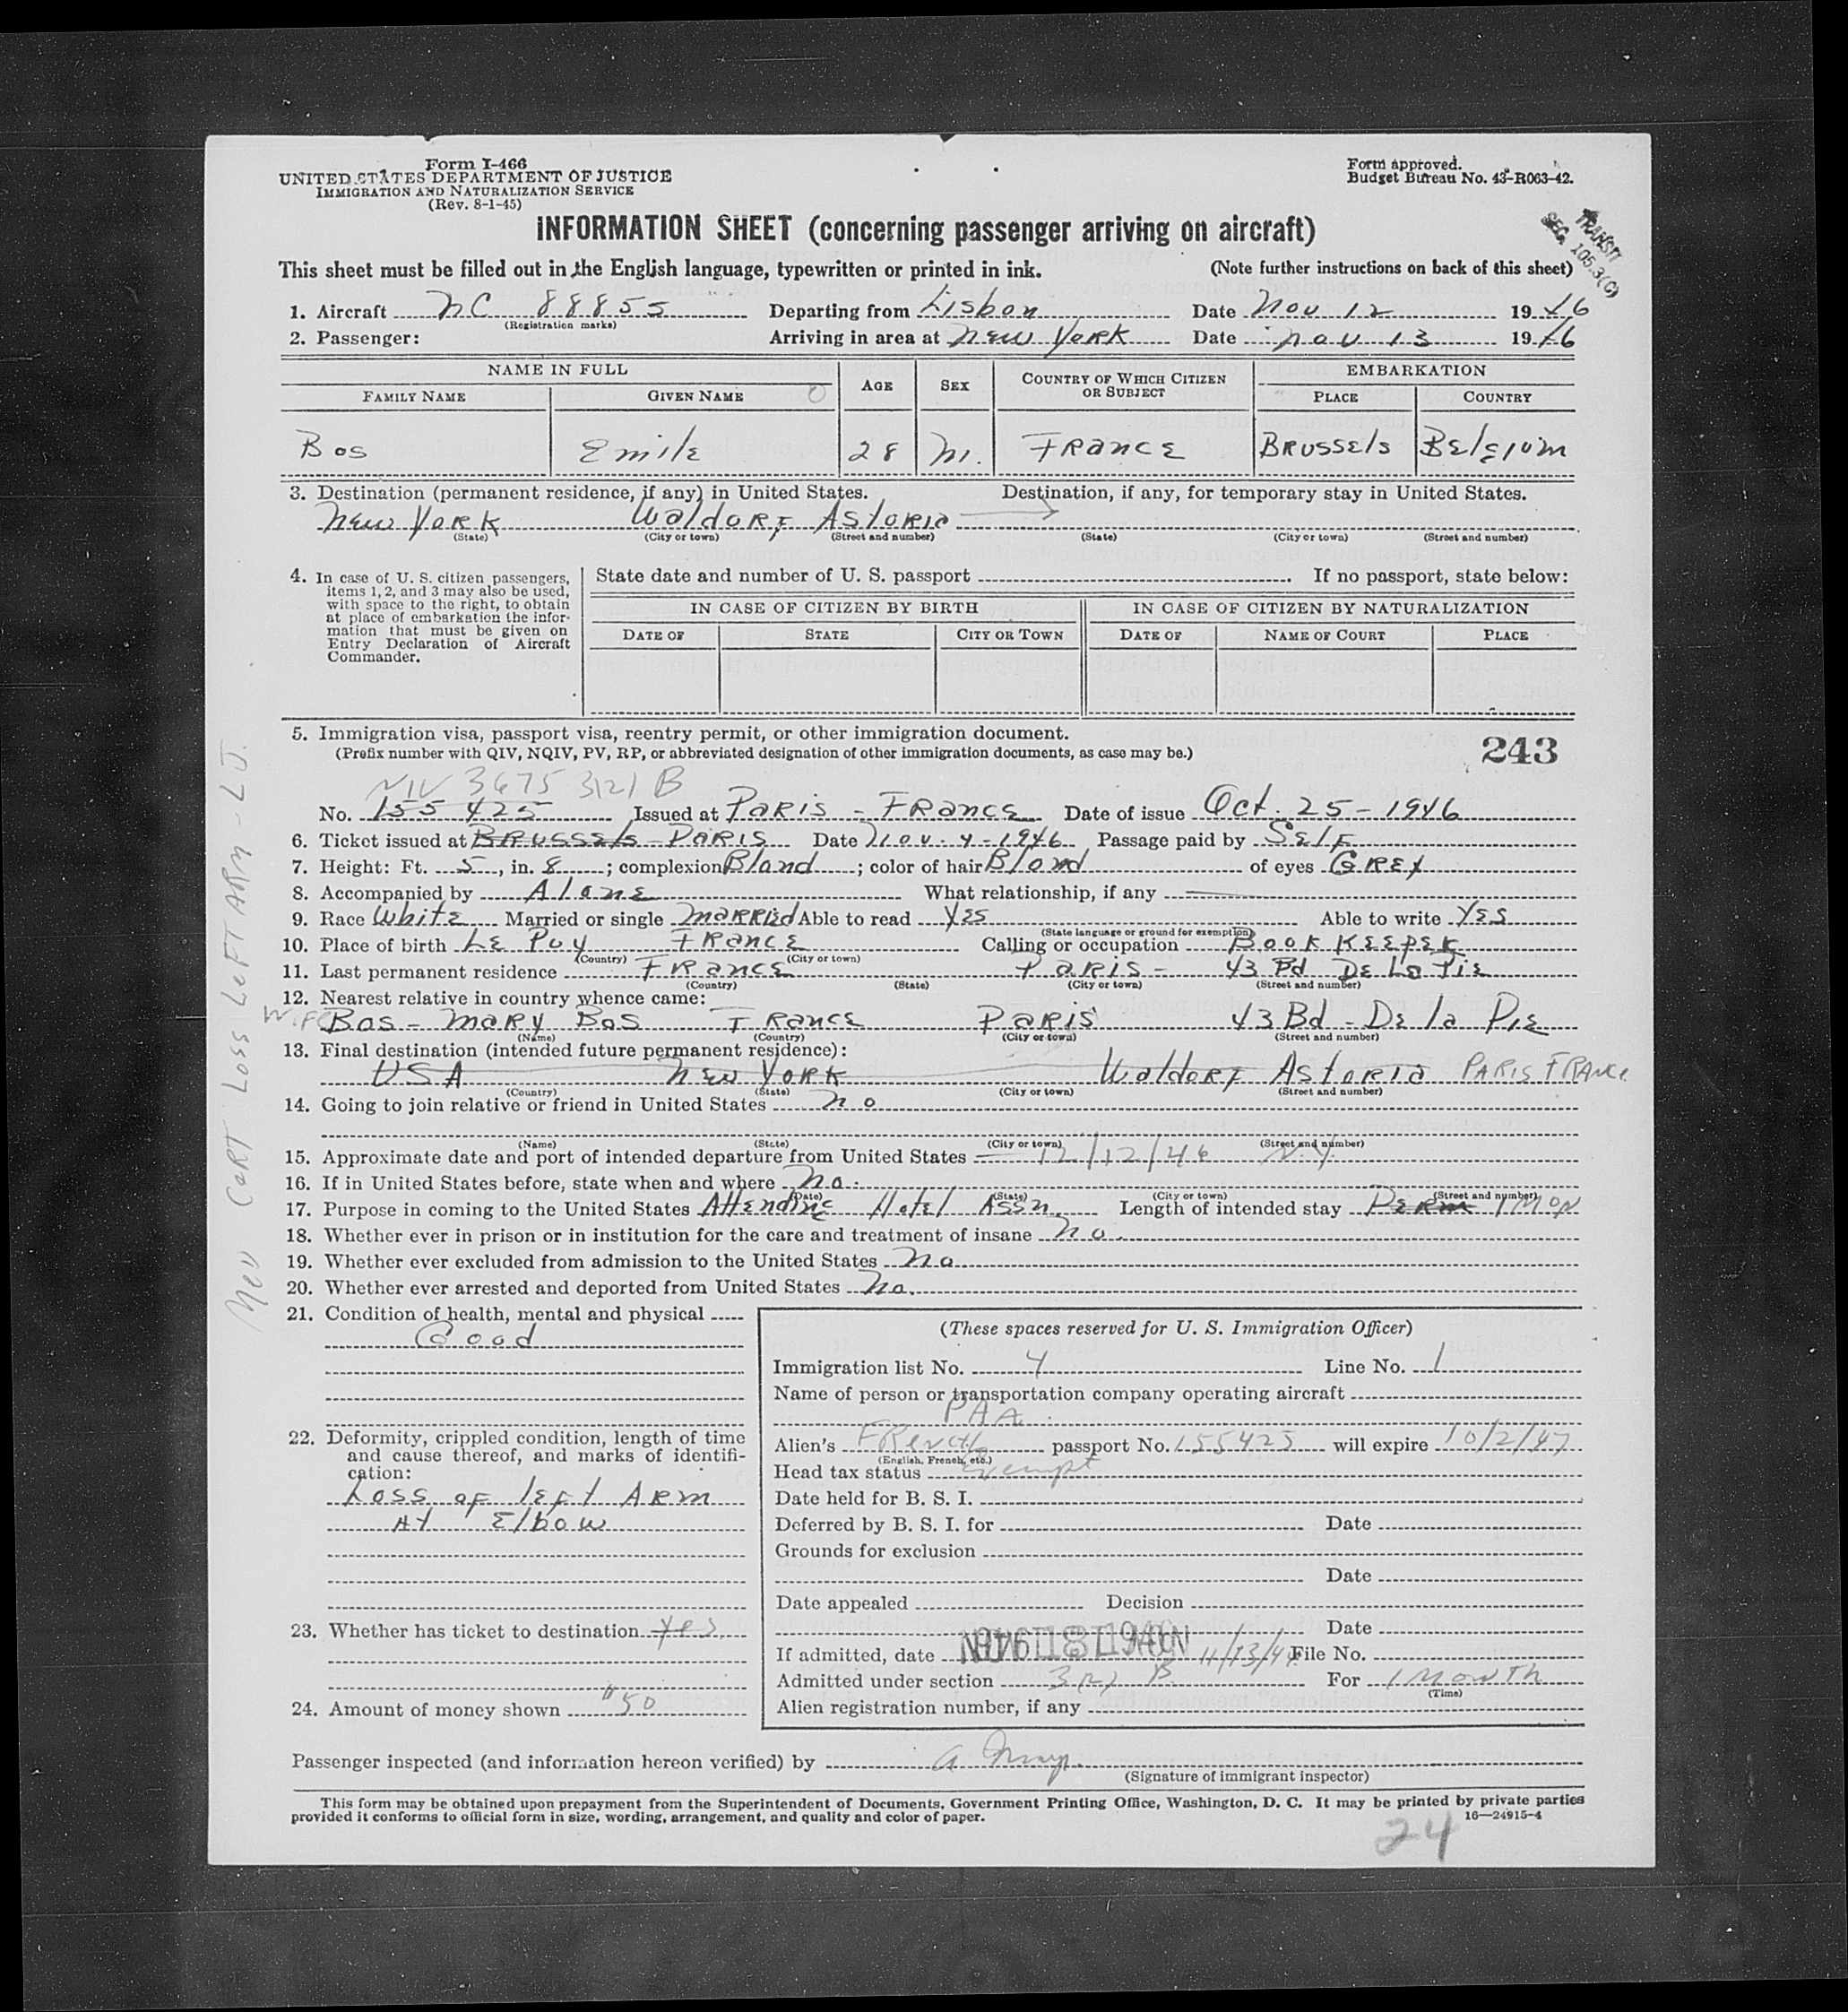 Form I-466
UNITED STATES DEPARTMENT OF JUSTICE
IMMIGRATION AND NATURALIZATION SERVICE
(Rev. 8-1-45)
Form approved.
Budget Bureau No. 43-R063-42.
INFORMATION SHEET (concerning passenger arriving on aircraft)
TRANSIT
SEC. 105.3(C)
This sheet must be filled out in the English language, typewritten or printed in ink. (Note further instructions on back of this sheet)
1. Aircraft NC 88855 Departing from Lisbon Date Nov 12 1946
(Registration marks)
2. Passenger: Arriving in area at New York Date Nov 13 1946
NAME IN FULL AGE SEX COUNTRY OF WHICH CITIZEN OR SUBJECT EMBARKATION
FAMILY NAME GIVEN NAME PLACE COUNTRY
Bos Emile 28 M. FRANCE BRUSSELS BELGIUM
3. Destination (permanent residence, if any) in United States. Destination, if any, for temporary stay in United States.
New York Waldorf Astoria
(State) (City or town) (Street and number) (State) (City or town) (Street and number)
4. In case of U. S. citizen passengers, items 1, 2, and 3 may also be used, with space to the right, to obtain at place of embarkation the information that must be given on Entry Declaration of Aircraft Commander.
State date and number of U. S. passport . If no passport, state below:
IN CASE OF CITIZEN BY BIRTH IN CASE OF CITIZEN BY NATURALIZATION
DATE OF STATE CITY OR TOWN DATE OF NAME OF COURT PLACE
5. Immigration visa, passport visa, reentry permit, or other immigration document.
(Prefix number with QIV, NQIV, PV, RP, or abbreviated designation of other immigration documents, as case may be.)
243
NIV 3675 3(2) B
No. 155 425 Issued at Paris - France Date of issue Oct. 25 - 1946
6. Ticket issued at Brussels - PARIS Date Nov. 4 - 1946 Passage paid by Self
7. Height: Ft. 5, in. 8; complexion Bland; color of hair Blond of eyes GREY
8. Accompanied by Alone What relationship, if any
9. Race White Married or single Married Able to read Yes Able to write Yes
(State language or ground for exemption)
10. Place of birth Le Puy France Calling or occupation Book Keeper
(Country) (City or town)
11. Last permanent residence France Paris - 43 Bd De La Pie
(Country) (State) (City or town) (Street and number)
12. Nearest relative in country whence came:
Wife Bos - Mary Bos France Paris 43 Bd - De la Pie
(Name) (Country) (City or town) (Street and number)
13. Final destination (intended future permanent residence):
USA New York Waldorf Astoria PARIS FRANCE
(Country) (State) (City or town) (Street and number)
14. Going to join relative or friend in United States No
(Name) (State) (City or town) (Street and number)
15. Approximate date and port of intended departure from United States 12/12/46 N.Y.
16. If in United States before, state when and where No.
(Date) (State) (City or town) (Street and number)
17. Purpose in coming to the United States Attending Hotel Assn. Length of intended stay Perm 1 Mon
18. Whether ever in prison or in institution for the care and treatment of insane No.
19. Whether ever excluded from admission to the United States No
20. Whether ever arrested and deported from United States No.
21. Condition of health, mental and physical
Good
22. Deformity, crippled condition, length of time and cause thereof, and marks of identification:
Loss of left Arm
At Elbow
23. Whether has ticket to destination Yes
24. Amount of money shown $50
(These spaces reserved for U. S. Immigration Officer)
Immigration list No. 4 Line No. 1
Name of person or transportation company operating aircraft
PAA
Alien's French passport No. 155425 will expire 10/2/47
(English, French, etc.)
Head tax status exempt
Date held for B. S. I.
Deferred by B. S. I. for Date
Grounds for exclusion
Date
Date appealed Decision
Date
If admitted, date 11/13/46 File No.
Admitted under section 3(2) B. For 1 Month
(Time)
Alien registration number, if any
Passenger inspected (and information hereon verified) by
(Signature of immigrant inspector)
This form may be obtained upon prepayment from the Superintendent of Documents, Government Printing Office, Washington, D. C. It may be printed by private parties
provided it conforms to official form in size, wording, arrangement, and quality and color of paper. 16—24915-4
24
Med CERT LOSS LEFT ARM - L.J.